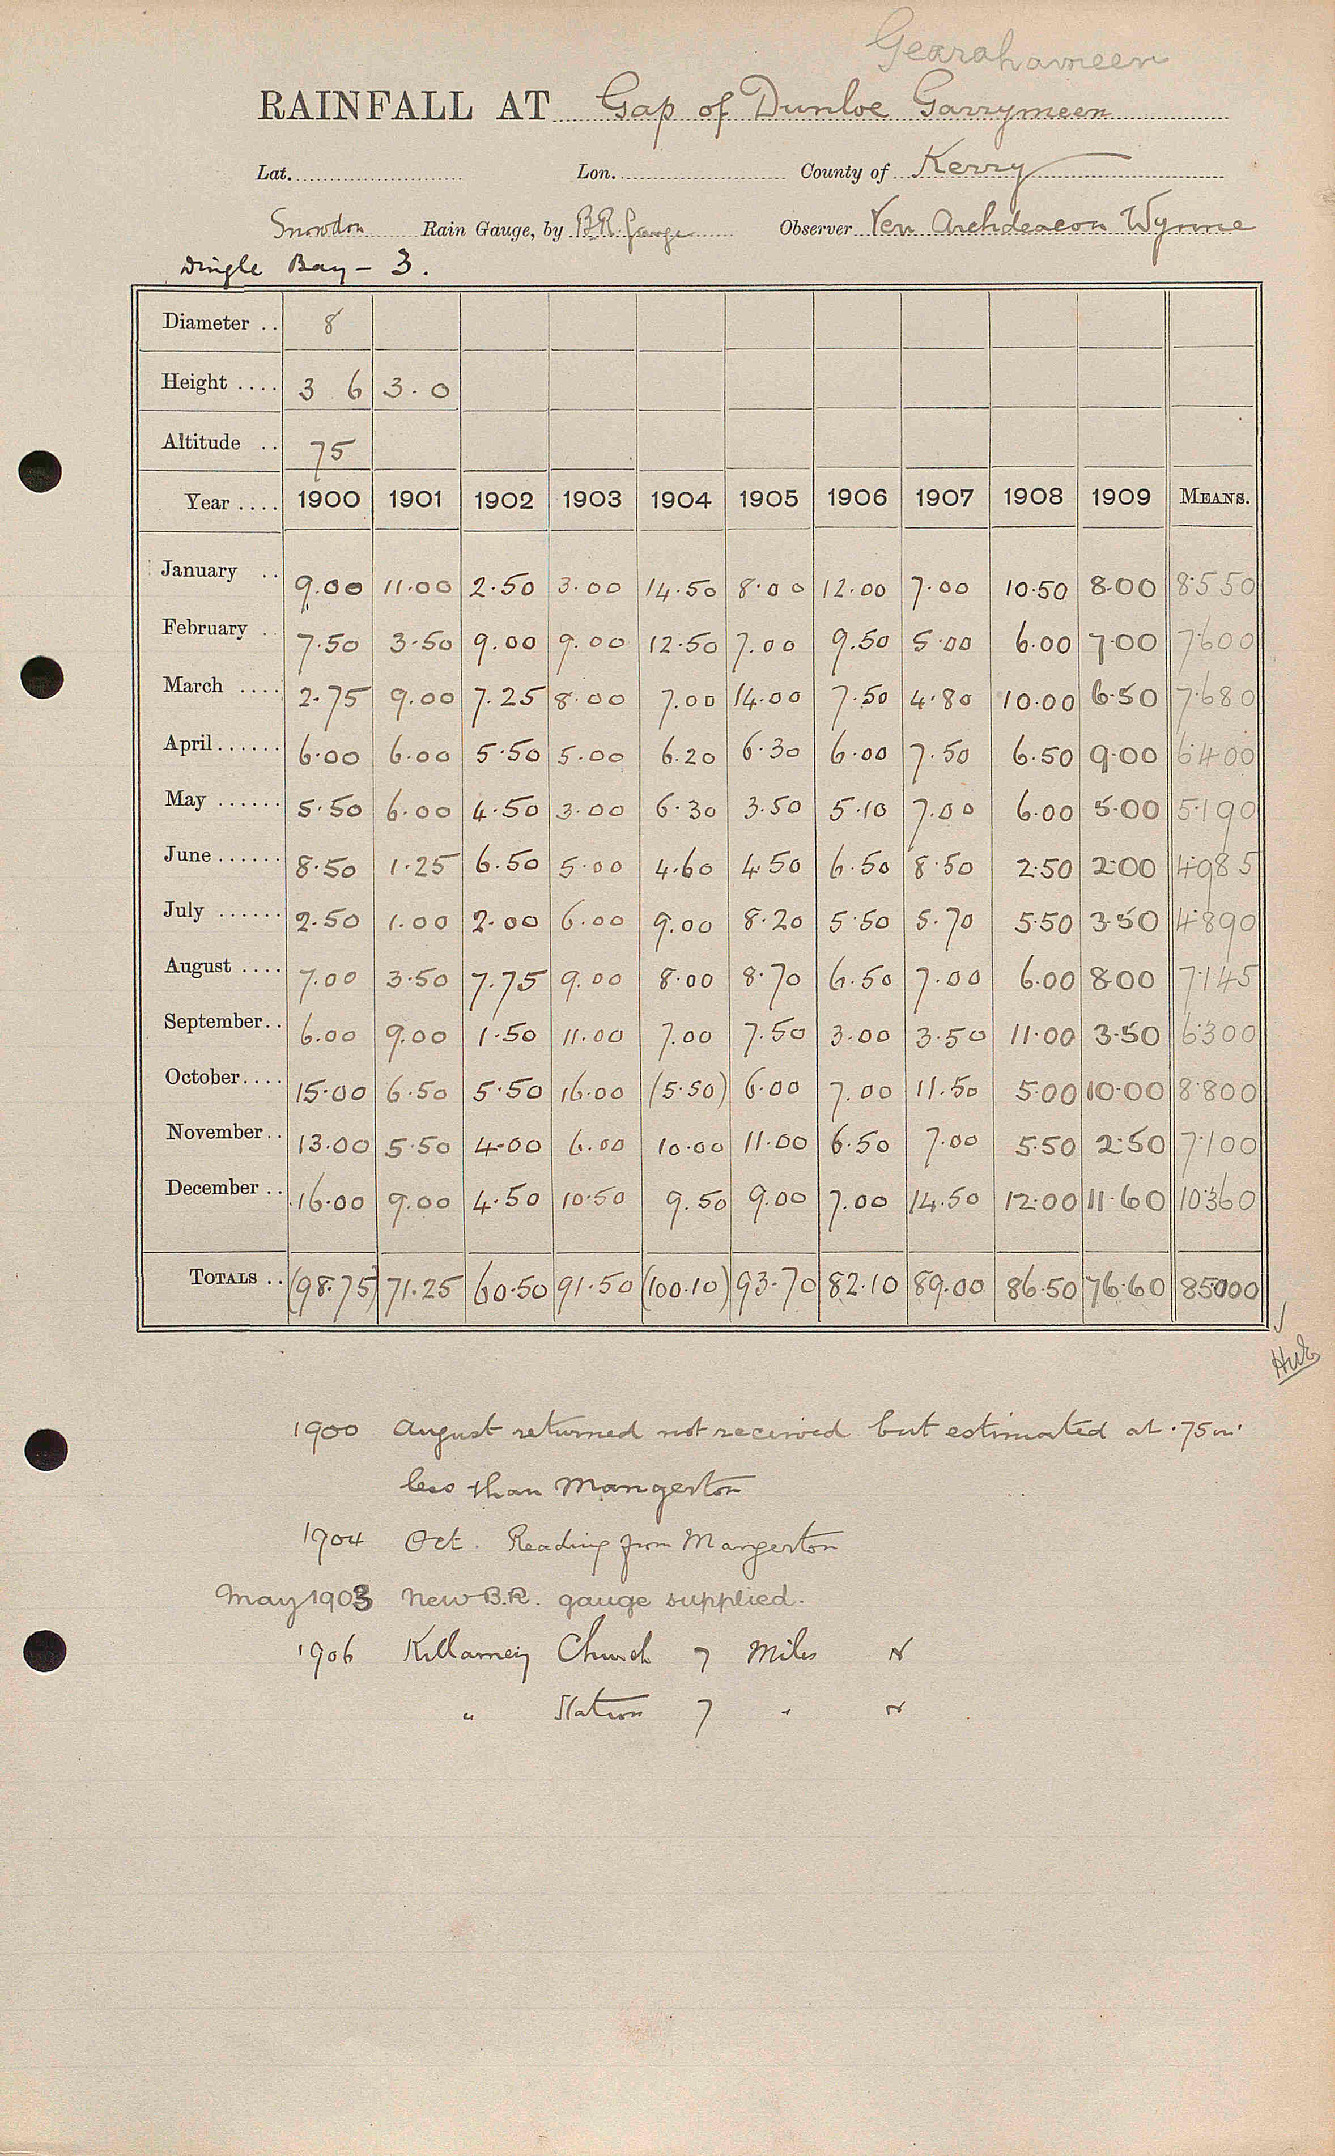 Gearahameen
RAINFALL AT Gap of Dunloe Garrymeen
Lat. Lon. County of Kerry
Snowdon Rain Gauge, by B.R. Gauge Observer Ven Archdeacon Wynne
Dingle Bay - 3.
Diameter .. 8
Height .... 3 6 3.0
Altitude .. 75
Year .... 1900 1901 1902 1903 1904 1905 1906 1907 1908 1909 MEANS.
January .. 9.00 11.00 2.50 3.00 14.50 8.00 12.00 7.00 10.50 8.00 8.550
February .. 7.50 3.50 9.00 9.00 12.50 7.00 9.50 5.00 6.00 7.00 7.600
March .... 2.75 9.00 7.25 8.00 7.00 14.00 7.50 4.80 10.00 6.50 7.680
April...... 6.00 6.00 5.50 5.00 6.20 6.30 6.00 7.50 6.50 9.00 6.400
May ...... 5.50 6.00 4.50 3.00 6.30 3.50 5.10 7.00 6.00 5.00 5.190
June...... 8.50 1.25 6.50 5.00 4.60 4.50 6.50 8.50 2.50 2.00 4.985
July ...... 2.50 1.00 2.00 6.00 9.00 8.20 5.50 5.70 5.50 3.50 4.890
August .... 7.00 3.50 7.75 9.00 8.00 8.70 6.50 7.00 6.00 8.00 7.145
September.. 6.00 9.00 1.50 11.00 7.00 7.50 3.00 3.50 11.00 3.50 6.300
October.... 15.00 6.50 5.50 16.00 (5.50) 6.00 7.00 11.50 5.00 10.00 8.800
November.. 13.00 5.50 4.00 6.00 10.00 11.00 6.50 7.00 5.50 2.50 7.100
December .. 16.00 9.00 4.50 10.50 9.50 9.00 7.00 14.50 12.00 11.60 10.360
TOTALS .. (98.75) 71.25 60.50 91.50 (100.10) 93.70 82.10 89.00 86.50 76.60 85.000
1900 August returned not received but estimated at .75 in.
less than Mangerton
1904 Oct. Reading from Mangerton
May 1903 New B.R. gauge supplied.
1906 Killarney Church 7 Miles N
" Station 7 " N